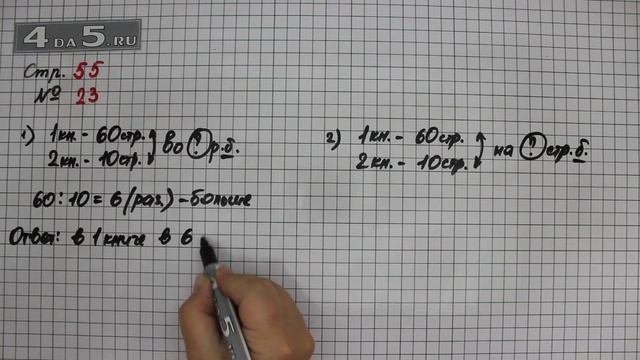 4DA5.RU
Стр. 55
№ 23
1) 1кн. - 60стр. во ? р.б.
2кн. - 10стр.
60:10=6(раз)-больше
Ответ: в 1 книге в 6
2) 1кн. - 60стр. на ? стр.б.
2кн. - 10стр.
5